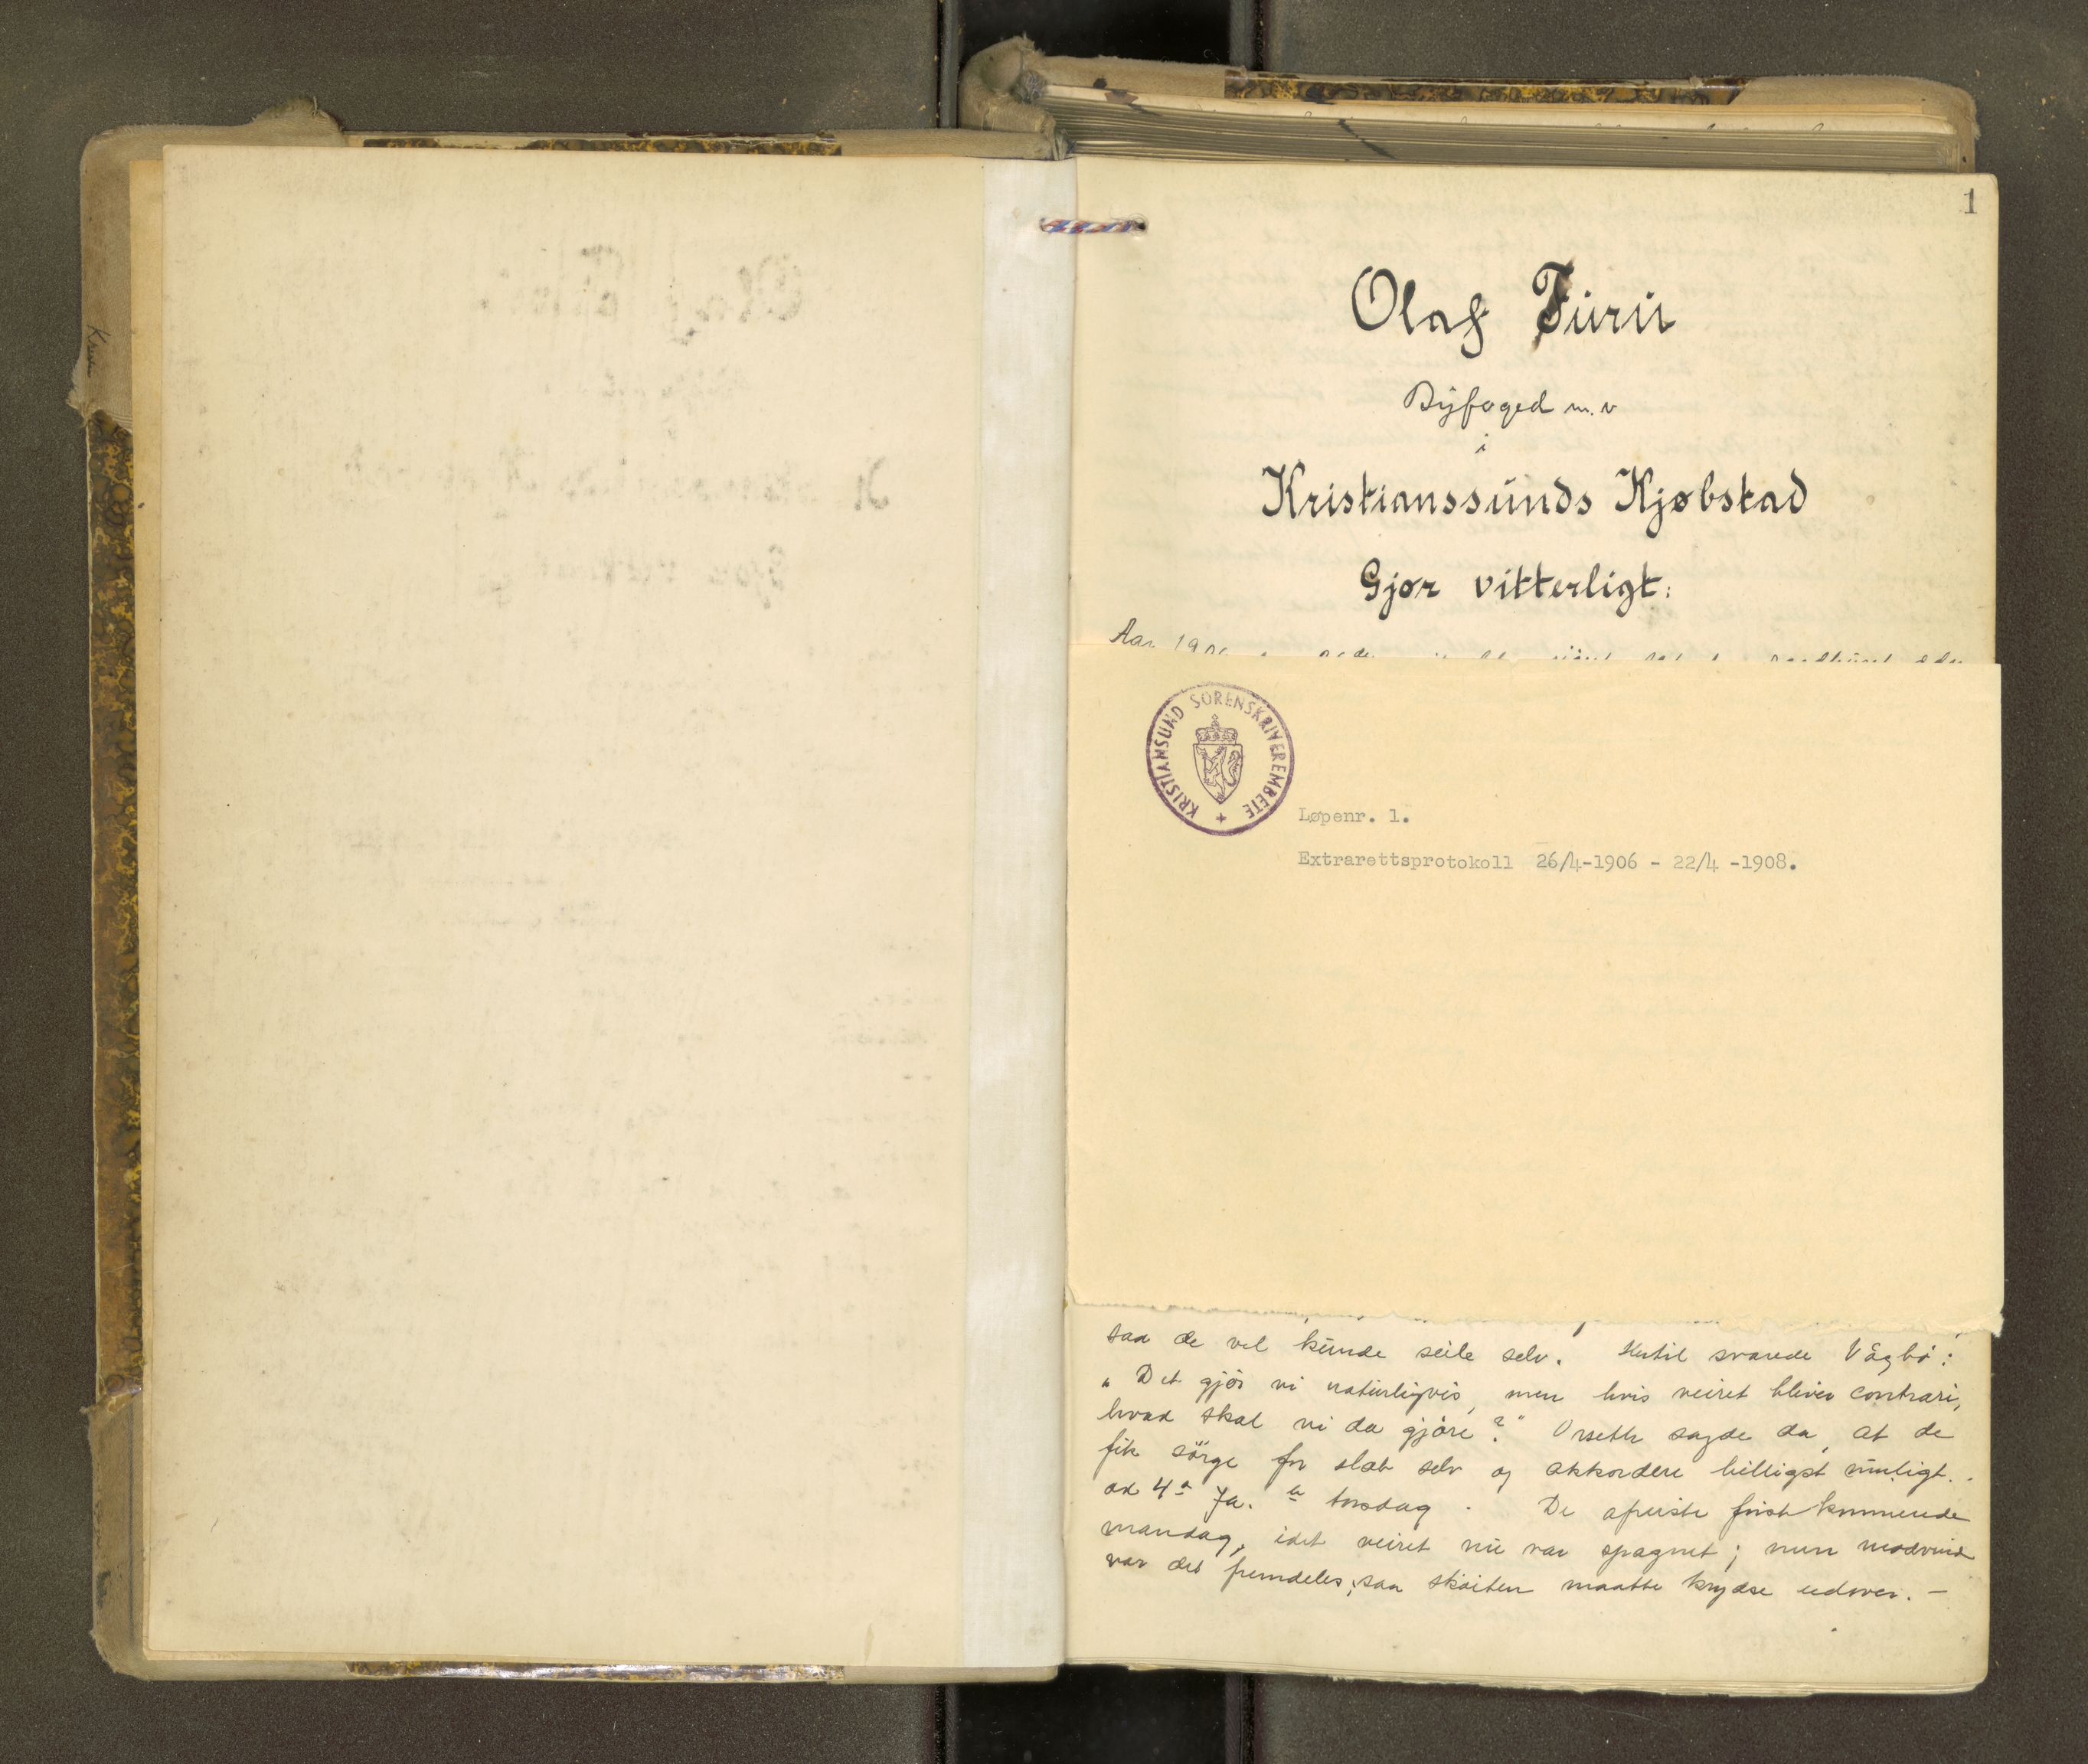 1
Olaf Furu
Byfoged m.v
i
Kristianssunds Kjøbstad
Gjør vitterligt:
Aar
KRISTIANSUND SORENSKRIVEREMBETE
Løpenr. 1.
Extrarettsprotokoll 26/4-1906 - 22/4 -1908.
saa de vel kunde seile selv. Hertil svarede Vågbø:
"Det gjør vi naturligvis, men hvis veiret bliver contrari,
hvad skal vi da gjøre?" Orseth sagde da, at de
fik sørge for slæb selv og akkordere billigst muligt.
ad 4de Ja. torsdag. De afreiste først kommende
mandag, idet veiret nu var spagnet; men modvind
var det fremdeles, saa skøiten maatte krydse udover. —